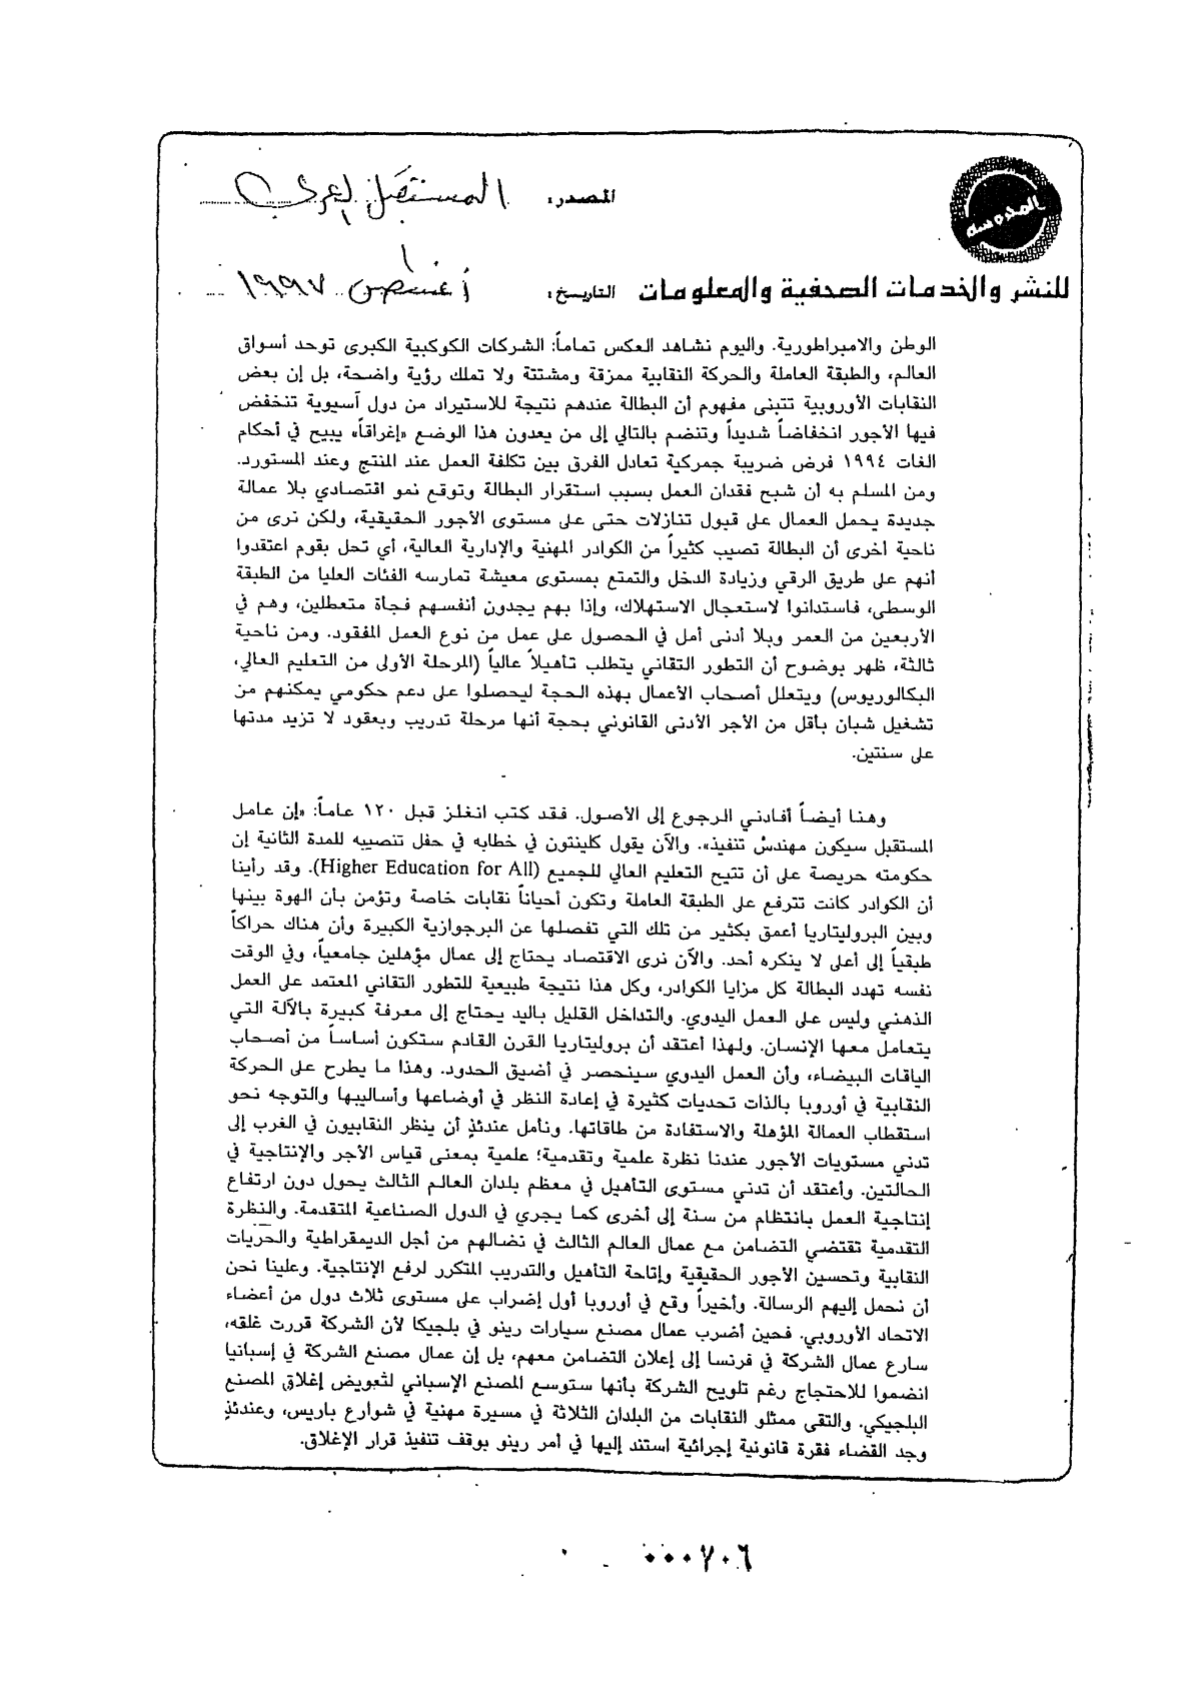 المصدر: المستقبل العربي
المحروسة
للنشر والخدمات الصحفية والمعلومات
التاريخ: أغسطس ١٩٩٧
الوطن والامبراطورية. واليوم نشاهد العكس تماماً: الشركات الكوكبية الكبرى توحد أسواق
العالم، والطبقة العاملة والحركة النقابية ممزقة ومشتتة ولا تملك رؤية واضحة، بل إن بعض
النقابات الأوروبية تتبنى مفهوم أن البطالة عندهم نتيجة للاستيراد من دول آسيوية تنخفض
فيها الأجور انخفاضاً شديداً وتنضم بالتالي إلى من يعدون هذا الوضع «إغراقاً» يبيح في أحكام
الغات ١٩٩٤ فرض ضريبة جمركية تعادل الفرق بين تكلفة العمل عند المنتج وعند المستورد.
ومن المسلم به أن شبح فقدان العمل بسبب استقرار البطالة وتوقع نمو اقتصادي بلا عمالة
جديدة يحمل العمال على قبول تنازلات حتى على مستوى الأجور الحقيقية، ولكن نرى من
ناحية أخرى أن البطالة تصيب كثيراً من الكوادر المهنية والإدارية العالية، أي تحل بقوم اعتقدوا
أنهم على طريق الرقي وزيادة الدخل والتمتع بمستوى معيشة تمارسه الفئات العليا من الطبقة
الوسطى، فاستدانوا لاستعجال الاستهلاك، وإذا بهم يجدون أنفسهم فجأة متعطلين، وهم في
الأربعين من العمر وبلا أدنى أمل في الحصول على عمل من نوع العمل المفقود. ومن ناحية
ثالثة، ظهر بوضوح أن التطور التقاني يتطلب تأهيلاً عالياً (المرحلة الأولى من التعليم العالي،
البكالوريوس) ويتعلل أصحاب الأعمال بهذه الحجة ليحصلوا على دعم حكومي يمكنهم من
تشغيل شبان بأقل من الأجر الأدنى القانوني بحجة أنها مرحلة تدريب وبعقود لا تزيد مدتها
على سنتين.
وهنا أيضاً أفادني الرجوع إلى الأصول. فقد كتب انغلز قبل ١٢٠ عاماً: «إن عامل
المستقبل سيكون مهندسُ تنفيذ». والآن يقول كلينتون في خطابه في حفل تنصيبه للمدة الثانية إن
حكومته حريصة على أن تتيح التعليم العالي للجميع (Higher Education for All). وقد رأينا
أن الكوادر كانت تترفع على الطبقة العاملة وتكون أحياناً نقابات خاصة وتؤمن بأن الهوة بينها
وبين البروليتاريا أعمق بكثير من تلك التي تفصلها عن البرجوازية الكبيرة وأن هناك حراكاً
طبقياً إلى أعلى لا ينكره أحد. والآن نرى الاقتصاد يحتاج إلى عمال مؤهلين جامعياً، وفي الوقت
نفسه تهدد البطالة كل مزايا الكوادر، وكل هذا نتيجة طبيعية للتطور التقاني المعتمد على العمل
الذهني وليس على العمل اليدوي. والتداخل القليل باليد يحتاج إلى معرفة كبيرة بالآلة التي
يتعامل معها الإنسان. ولهذا أعتقد أن بروليتاريا القرن القادم ستكون أساساً من أصحاب
الياقات البيضاء، وأن العمل اليدوي سينحصر في أضيق الحدود. وهذا ما يطرح على الحركة
النقابية في أوروبا بالذات تحديات كثيرة في إعادة النظر في أوضاعها وأساليبها والتوجه نحو
استقطاب العمالة المؤهلة والاستفادة من طاقاتها. ونأمل عندئذٍ أن ينظر النقابيون في الغرب إلى
تدني مستويات الأجور عندنا نظرة علمية وتقدمية؛ علمية بمعنى قياس الأجر والإنتاجية في
الحالتين. وأعتقد أن تدني مستوى التأهيل في معظم بلدان العالم الثالث يحول دون ارتفاع
إنتاجية العمل بانتظام من سنة إلى أخرى كما يجري في الدول الصناعية المتقدمة. والنظرة
التقدمية تقتضي التضامن مع عمال العالم الثالث في نضالهم من أجل الديمقراطية والحريات
النقابية وتحسين الأجور الحقيقية وإتاحة التأهيل والتدريب المتكرر لرفع الإنتاجية. وعلينا نحن
أن نحمل إليهم الرسالة. وأخيراً وقع في أوروبا أول إضراب على مستوى ثلاث دول من أعضاء
الاتحاد الأوروبي. فحين أضرب عمال مصنع سيارات رينو في بلجيكا لأن الشركة قررت غلقه،
سارع عمال الشركة في فرنسا إلى إعلان التضامن معهم، بل إن عمال مصنع الشركة في إسبانيا
انضموا للاحتجاج رغم تلويح الشركة بأنها ستوسع المصنع الإسباني لتعويض إغلاق المصنع
البلجيكي. والتقى ممثلو النقابات من البلدان الثلاثة في مسيرة مهنية في شوارع باريس، وعندئذٍ
وجد القضاء فقرة قانونية إجرائية استند إليها في أمر رينو بوقف تنفيذ قرار الإغلاق.
٠٠٠٧٠٦